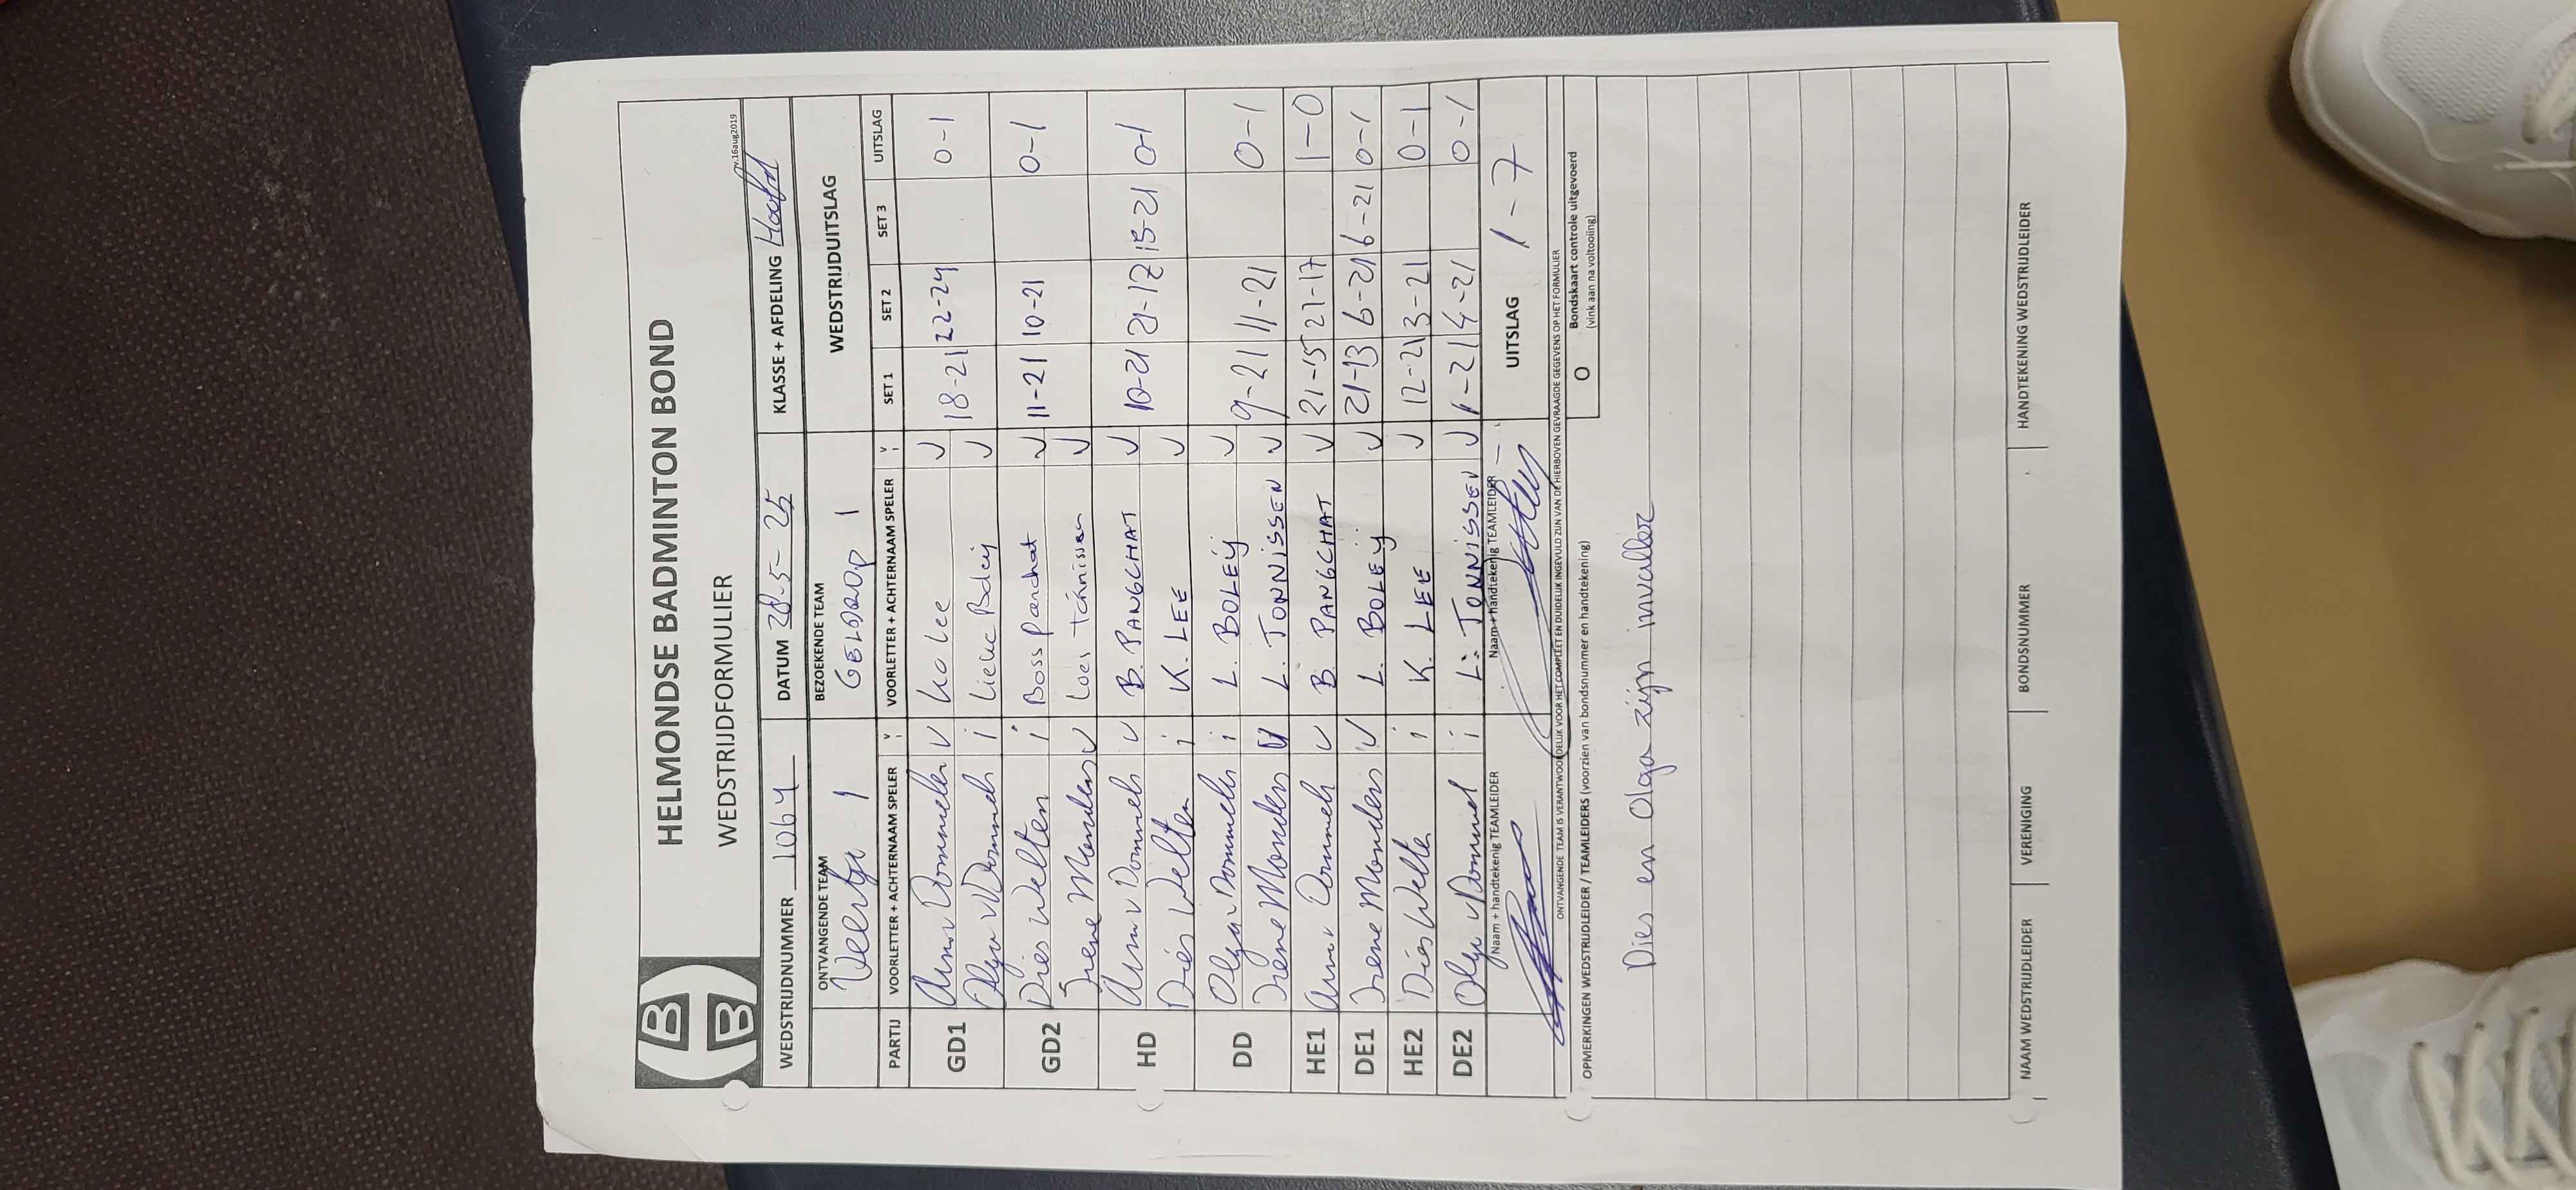 HELMONDSE BADMINTON BOND
WEDSTRIJDFORMULIER
rv.16aug2019
WEDSTRIJDNUMMER 1064 DATUM 28-5-25 KLASSE + AFDELING Hoofd
ONTVANGENDE TEAM BEZOEKENDE TEAM WEDSTRIJDUITSLAG
Veertje 1 GELDROP 1
PARTIJ VOORLETTER + ACHTERNAAM SPELER V i VOORLETTER + ACHTERNAAM SPELER V i SET 1 SET 2 SET 3 UITSLAG
GD1 Arno v Dommelen V Ka Lee V 18-21 22-24 0-1
Olga v Dommel i Lieke Boleij V
GD2 Dies Welten i Boss Panchat V 11-21 10-21 0-1
Irene Manders V Loes Tönnissen V
HD Arno v Dommels V B. PANGCHAT V 10-21 21-17 15-21 0-1
Dies Welten i K. LEE V
DD Olga v Dommels i L. BOLEIJ V 9-21 11-21 0-1
Irene Manders V L. TONNISSEN V
HE1 Arno v Dommels V B. PANGCHAT V 21-15 21-17 1-0
DE1 Irene Manders V L. BOLEIJ V 21-13 6-21 6-21 0-1
HE2 Dies Welten i K. LEE V 12-21 3-21 0-1
DE2 Olga v Dommel i L. TONNISSEN V 1-21 4-21 0-1
Naam + handtekenig TEAMLEIDER Naam + handtekenig TEAMLEIDER UITSLAG 1-7
ONTVANGENDE TEAM IS VERANTWOORDELIJK VOOR HET COMPLEET EN DUIDELIJK INGEVULD ZIJN VAN DE HIERBOVEN GEVRAAGDE GEGEVENS OP HET FORMULIER
OPMERKINGEN WEDSTRIJDLEIDER / TEAMLEIDERS (voorzien van bondsnummer en handtekening) O Bondskaart controle uitgevoerd
(vink aan na voltooiing)
Dies en Olga zijn invaller
NAAM WEDSTRIJDLEIDER VERENIGING BONDSNUMMER HANDTEKENING WEDSTRIJDLEIDER